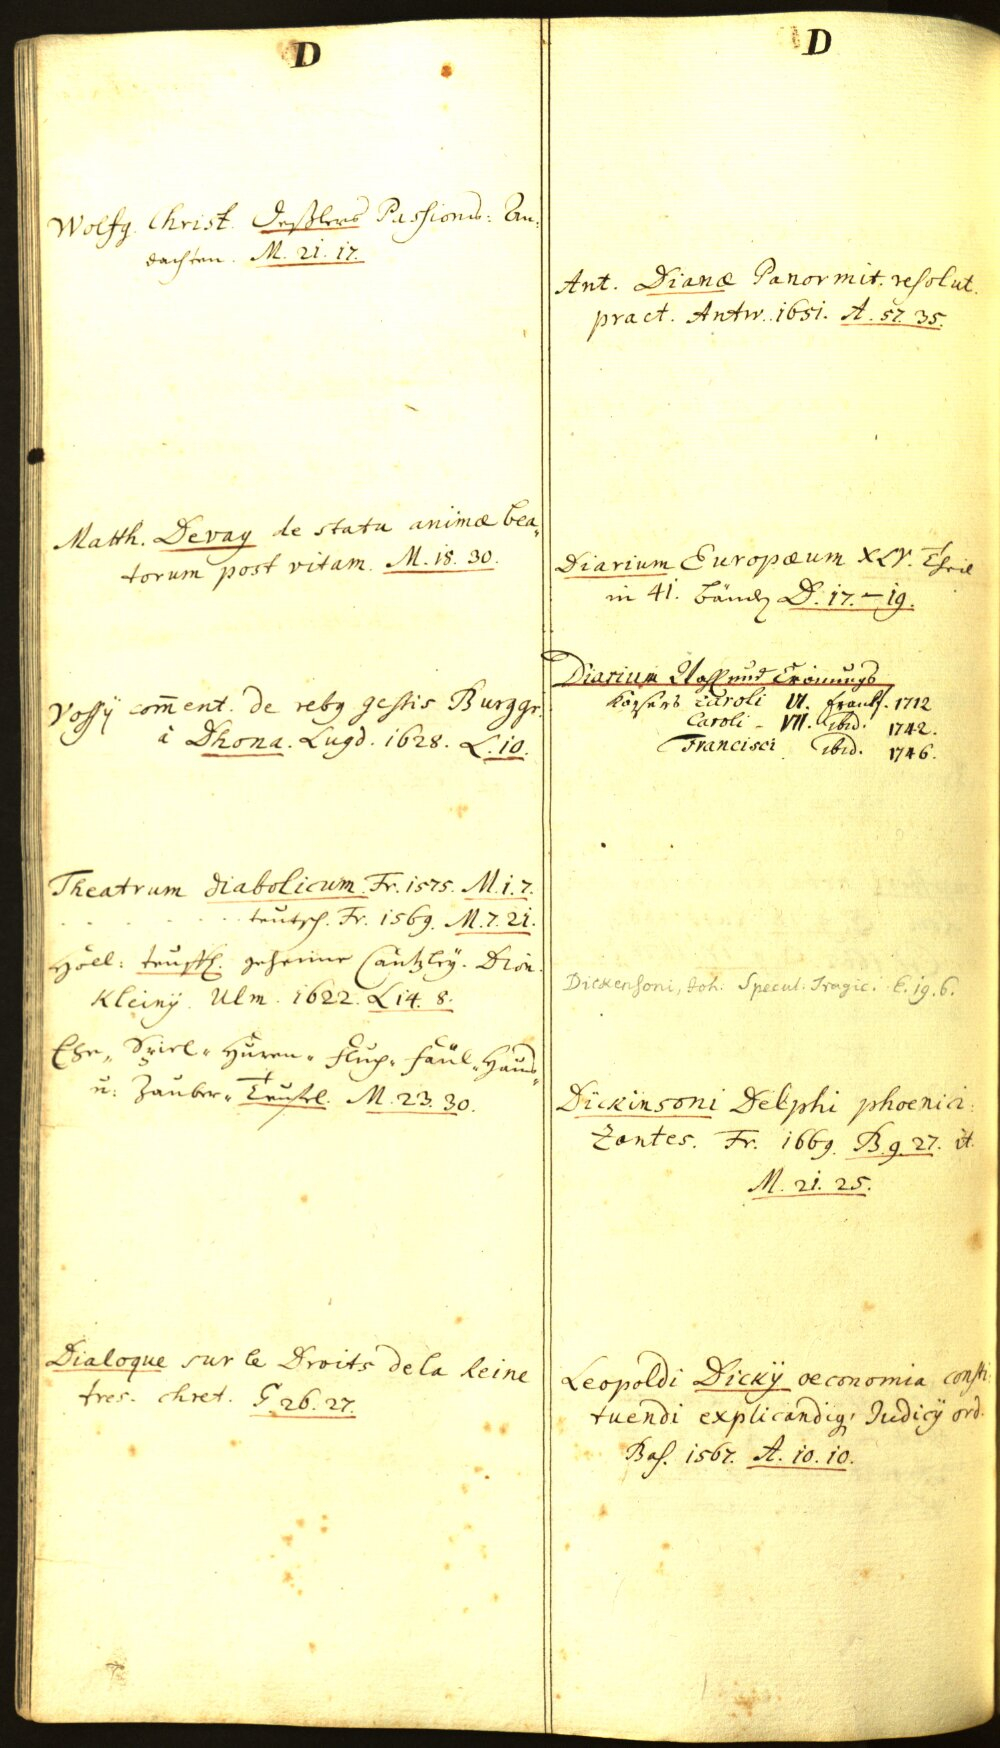 D
Wolfg. Christ. Deßlers Passions: An-
dachten. M. 21. 17.
Matth. Devay de statu animæ bea„
torum post vitam. M. 18. 30.
Vossÿ com̄ent. de rebg gestis Burggr.
à Dhona. Lugd. 1628. L. 10.
Theatrum diabolicum Fr. 1575. M. 1. 7.
. . . . . teutsch. Fr. 1569. M. 7. 21.
Höll: teufl. geheime Cantzleÿ. Dion.
Kleinÿ Ulm. 1622. L 14. 8.
Ehe„ Spiel„ Huren„ Fluch„ Faul„ Hauß„
u: Zauber„ Teufel. M. 23. 30.
Dialoque sur le Droits de la Reine
tres. chret. G. 26. 27.
D
Ant. Dianæ Panormit. resolut.
pract. Antw. 1651. A. 57. 35.
Diarium Europæum XLV. Theil
in 41. Bänden D. 17. – 19.
Diarium Wahl und Crönungs
Kaysers Caroli VI. Frankf. 1712
Caroli – VII. ibid. 1742.
Francisci ibid. 1746.
Dickensoni, Joh: Specul: Tragic. E. 19. 6.
Dickinsoni Delphi phoenici:
Zantes. Fr. 1669. B. 9. 27. it.
M. 21. 25.
Leopoldi Dickÿ oeconomia consti:
tuendi explicandiq, Judicÿ ord.
Bas. 1567. A. 10. 10.